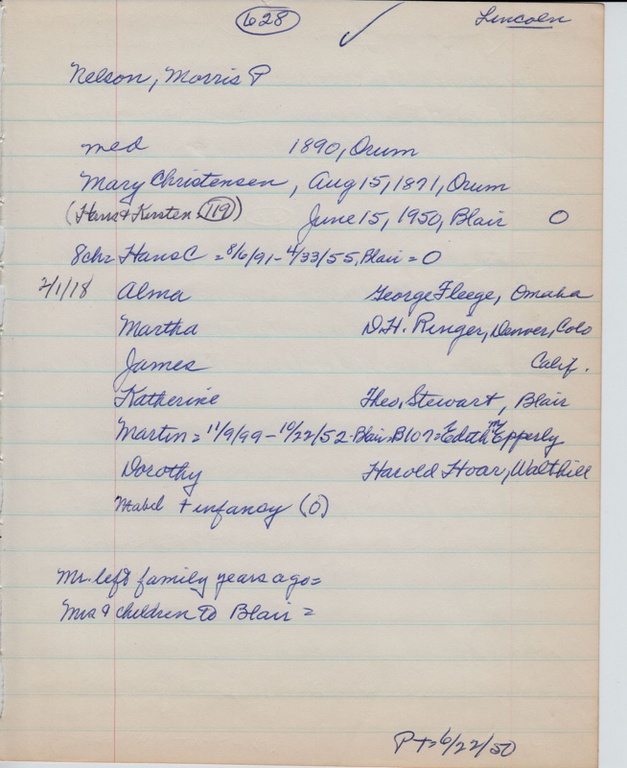 628 Lincoln
Nelson, Morris P
med 1890, Orum
Mary Christensen, Aug 15, 1871, Orum
(Hans + Kirsten 119) June 15, 1950, Blair O
8chr Hans C = 8/6/91 - 4/33/55, Blair = O
2/1/18 Alma George Fleege, Omaha
Martha D.H. Ringer, Denver, Colo
James Calif.
Katherine Theo. Stewart, Blair
Martin = 11/9/99 - 10/22/52 - Blair B107 = Edith M Epperly
Dorothy Harold Hoar, Walthill
Mabel + infancy (O)
Mr. left family years ago =
Mrs & children to Blair =
PT = 6/22/50